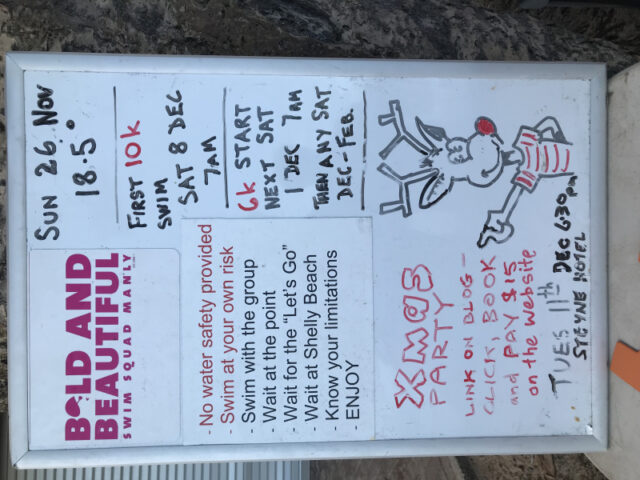 BOLD AND
BEAUTIFUL
SWIM SQUAD MANLY
SUN 26 NOV
18.5°
- No water safety provided
- Swim at your own risk
- Swim with the group
- Wait at the point
- Wait for the "Let's Go"
- Wait at Shelly Beach
- Know your limitations
- ENJOY
FIRST 10K
SWIM
SAT 8 DEC
7AM
6K START
NEXT SAT
1 DEC 7AM
THEN ANY SAT
DEC-FEB.
XMAS
PARTY
LINK ON BLOG -
CLICK, BOOK
and PAY $15
on the website
TUES 11th DEC 6.30pm
STEYNE HOTEL